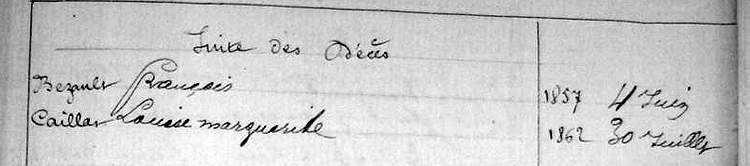 Suite des Décès
Bezault François 1857 4 Juin
Caillar Louise marguerite 1862 30 Juillet